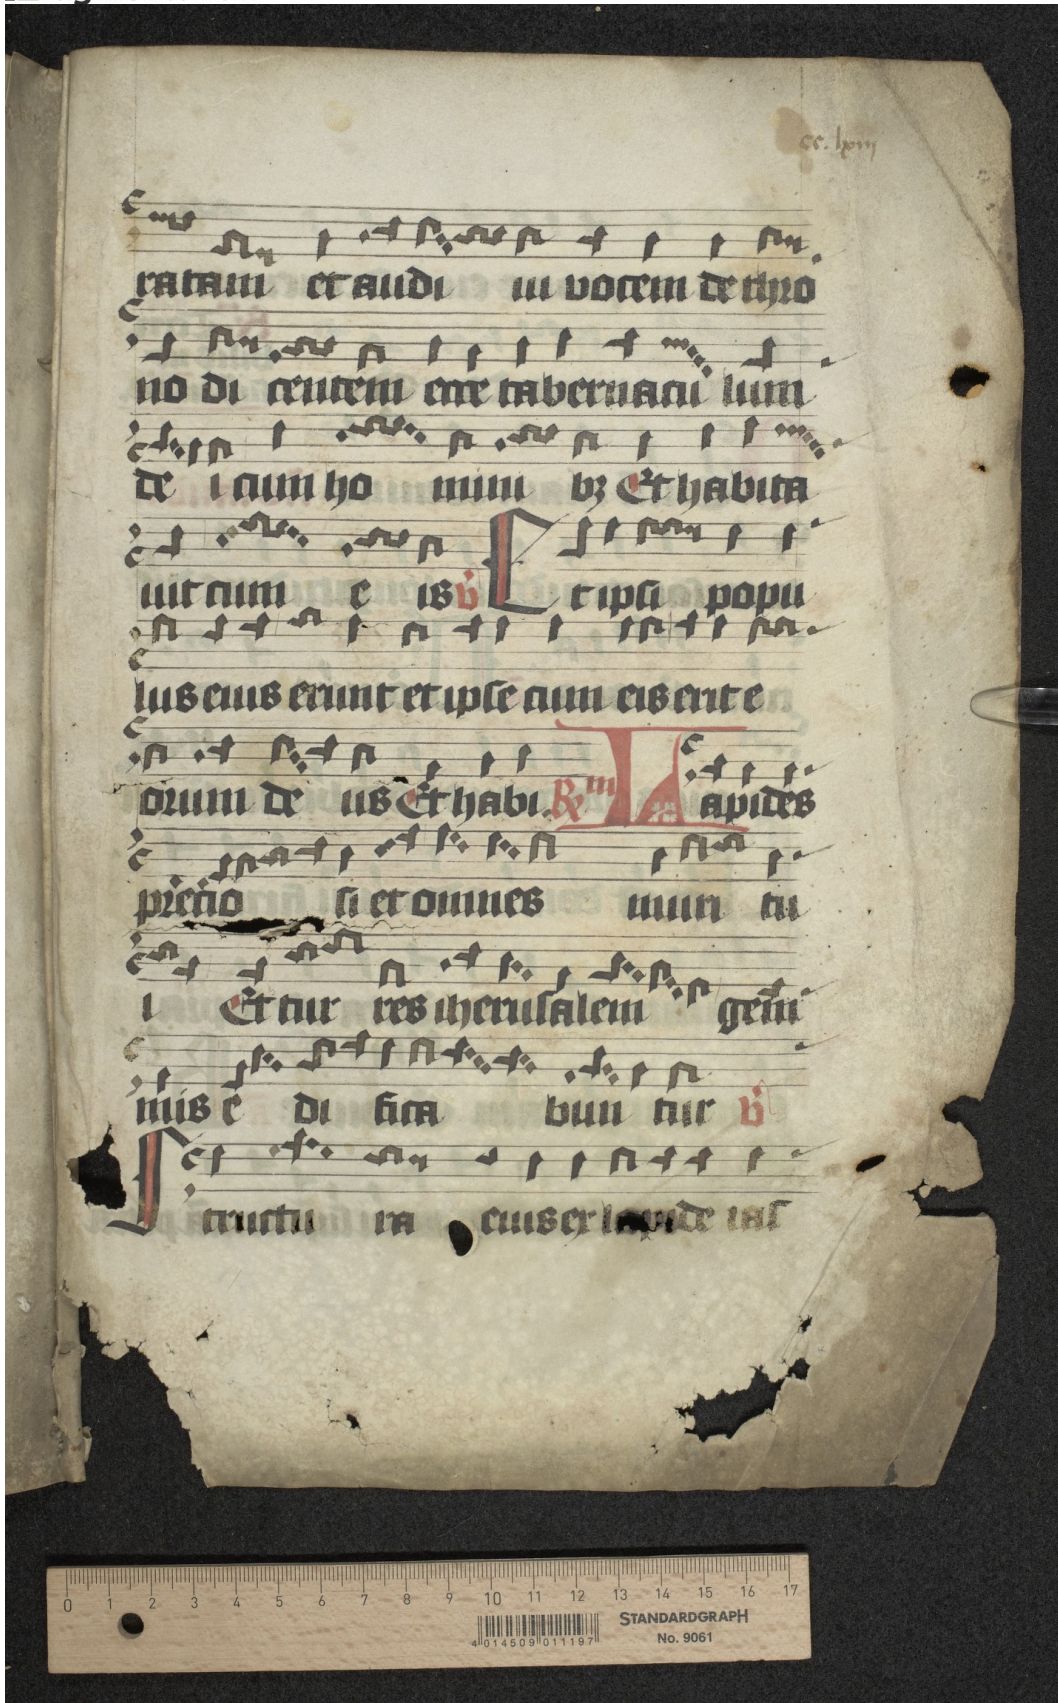 cc. lxiii
ratam et audi ui vocem de thro
no di centem ecce tabernacu lum
de i cum ho mini bꝫ Et habita
uit cum e is v̇ Et ipsi popu
lus eius erunt et ipse cum eis erit e
orum de us Et habi. ℟ m Lapides
preció si et omnes muri tu
i Et tur res iherusalem gem̄
mis e di fica bun tur v̇
Structu ra eius ex lapide ias
0 1 2 3 4 5 6 7 8 9 10 11 12 13 14 15 16 17
STANDARDGRAPH
No. 9061
4 014509 011197